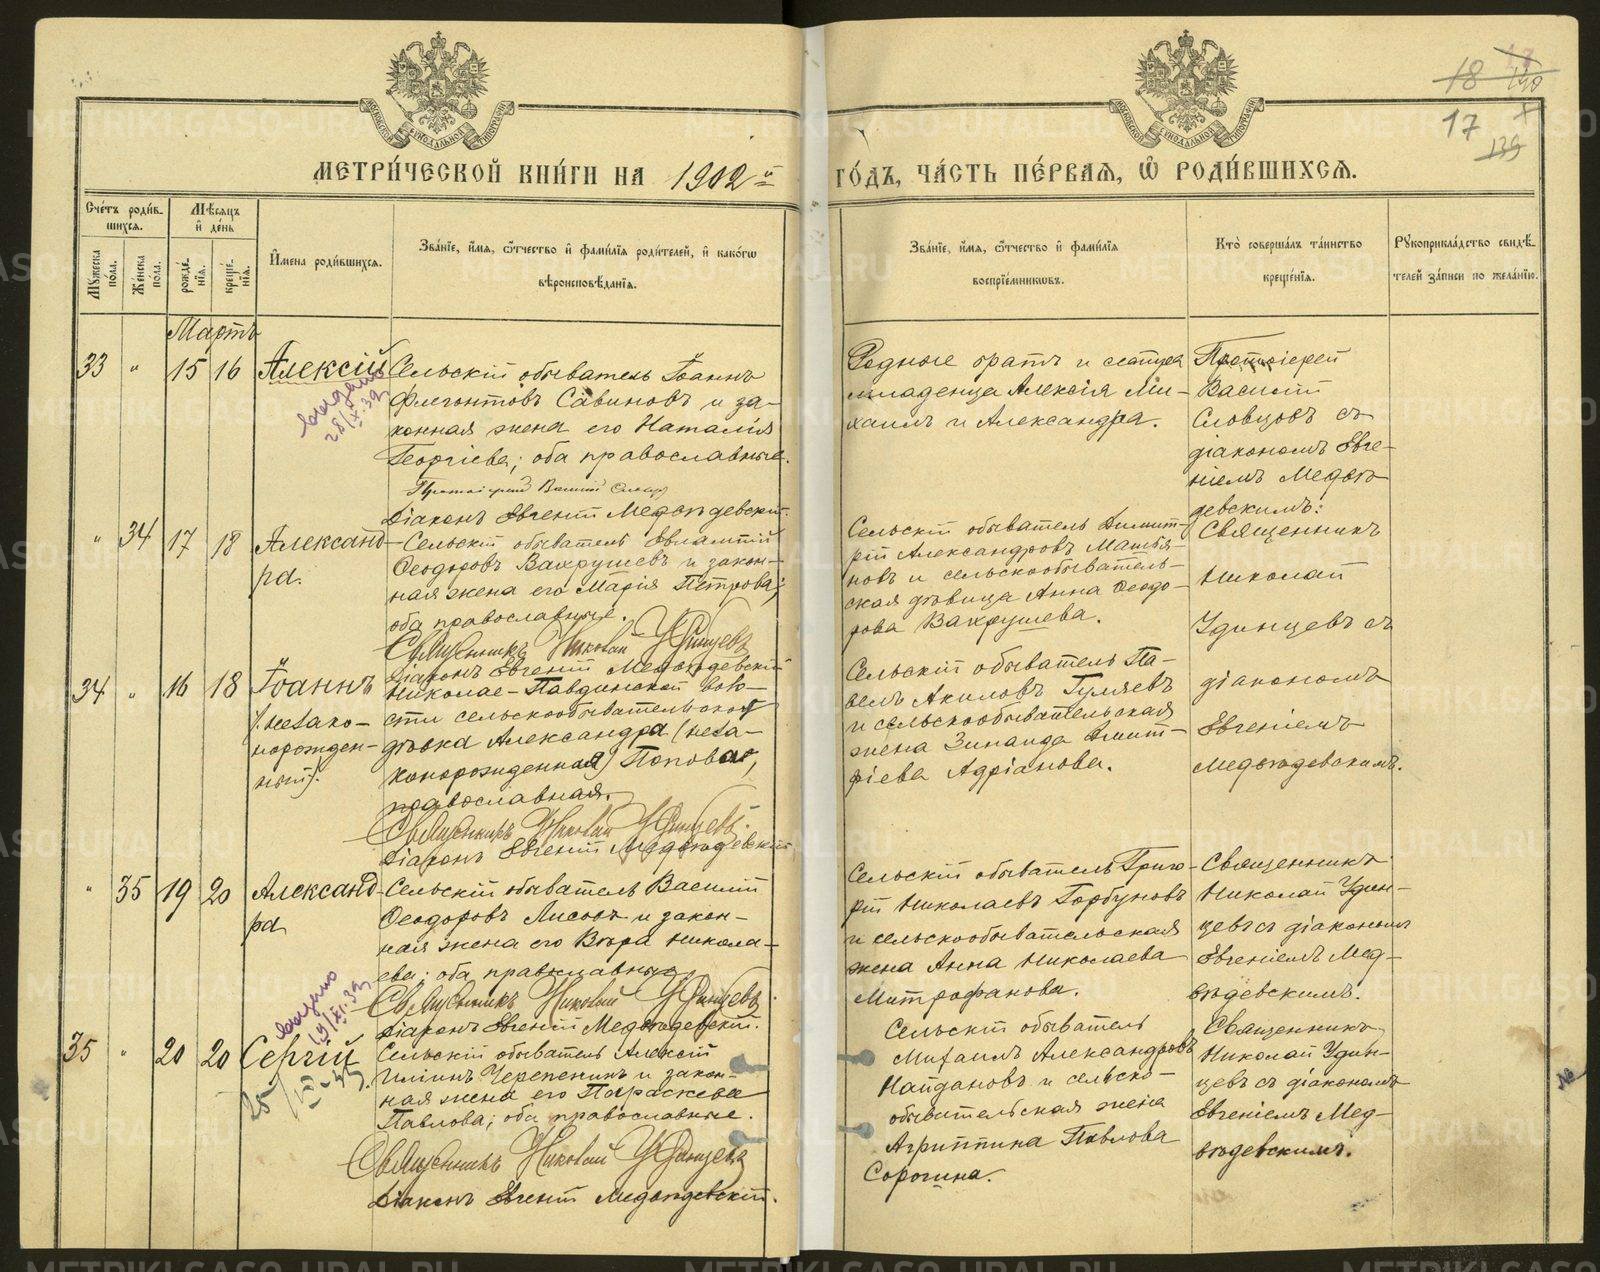 18
17
139
МЕТРИ́ЧЕСКОЙ КНИ́ГИ НА 1902й ГО́ДЪ, ЧА́СТЬ ПЕ́РВАѦ, Ѽ РОДИ́ВШИХСѦ.
Сче́тъ роди́вшихсѧ.
Мѣ́сѧцъ и҆ де́нь
И҆мена роди́вшихсѧ.
Зва́нїе, и҆́мѧ, ѻ҆́тчество и҆ фами́лїѧ роди́телей, и҆ како́гѡ
вѣроисповѣ́данїѧ.
Мꙋ́жеска по́ла.
Же́нска по́ла.
рожде́нїѧ.
креще́нїѧ.
Зва́нїе, и҆́мѧ, ѻ҆́тчество и҆ фами́лїѧ
воспрїе́мникѡвъ.
Кто̀ соверша́лъ та́инство
креще́нїѧ.
Рꙋкоприкла́дство свидѣ́-
телей за́писи по жела́нїю.
Мартъ
33 " 15 16 Алексій
выдано
28/X.39
Сельскій обыватель Іоаннъ
Флегонтовъ Савиновъ и за-
конная жена его Наталія
Георгіева; оба православные.
Протоіерей Василій Словцовъ
Діаконъ Евгеній Медвѣдевскій.
Родные братъ и сестра
младенца Алексія Ми-
хаилъ и Александра.
Протоіерей
Василій
Словцовъ съ
діакономъ Евге-
ніемъ Медвѣ-
девскимъ.
" 34 17 18 Александ-
ра.
Сельскій обыватель Евлампій
Ѳеодоровъ Вахрушевъ и закон-
ная жена его Марія Петрова;
оба православные.
Священникъ Николай Удинцевъ
Діаконъ Евгеній Медвѣдевскій
Сельскій обыватель Димит-
рій Александровъ Матвѣ-
новъ и сельскообыватель-
ская дѣвица Анна Ѳеодо-
рова Вахрушева.
Священникъ
Николай
Удинцевъ съ
діакономъ
Евгеніемъ
Медвѣдевскимъ.
34 " 16 18 Іоаннъ
(незако-
норожден-
ный).
Николае-Павдинской воло-
сти сельскообывательской
дѣвка Александра (неза-
конорожденная) Попова,
православная.
Священникъ Николай Удинцевъ.
Діаконъ Евгеній Медвѣдевскій
Сельскій обыватель Па-
велъ Акиловъ Гуляевъ
и сельскообывательская
жена Зинаида Димит-
ріева Адріанова.
" 35 19 20 Александ-
ра
Сельскій обыватель Василій
Ѳеодоровъ Лисовъ и закон-
ная жена его Вѣра Никола-
ева; оба православные
Священникъ Николай Удинцевъ.
Діаконъ Евгеній Медвѣдевскій.
Сельскій обыватель Григо-
рій Николаевъ Горбуновъ
и сельскообывательская
жена Анна Николаева
Митрофанова.
Священникъ
Николай Удин-
цевъ съ діакономъ
Евгеніемъ Мед-
вѣдевскимъ.
35 " 20 20 Сергій
выдано
19/XI.39
Сельскій обыватель Алексій
Иліинъ Черепенинъ и закон-
ная жена его Параскева
Павлова; оба православные.
Священникъ Николай Удинцевъ
Діаконъ Евгеній Медвѣдевскій.
Сельскій обыватель
Михаилъ Александровъ
Найдановъ и сельско-
обывательская жена
Агриппина Павлова
Сорогина.
Священникъ
Николай Удин-
цевъ съ діакономъ
Евгеніемъ Мед-
вѣдевскимъ.
METRIKI.GASO-URAL.RU